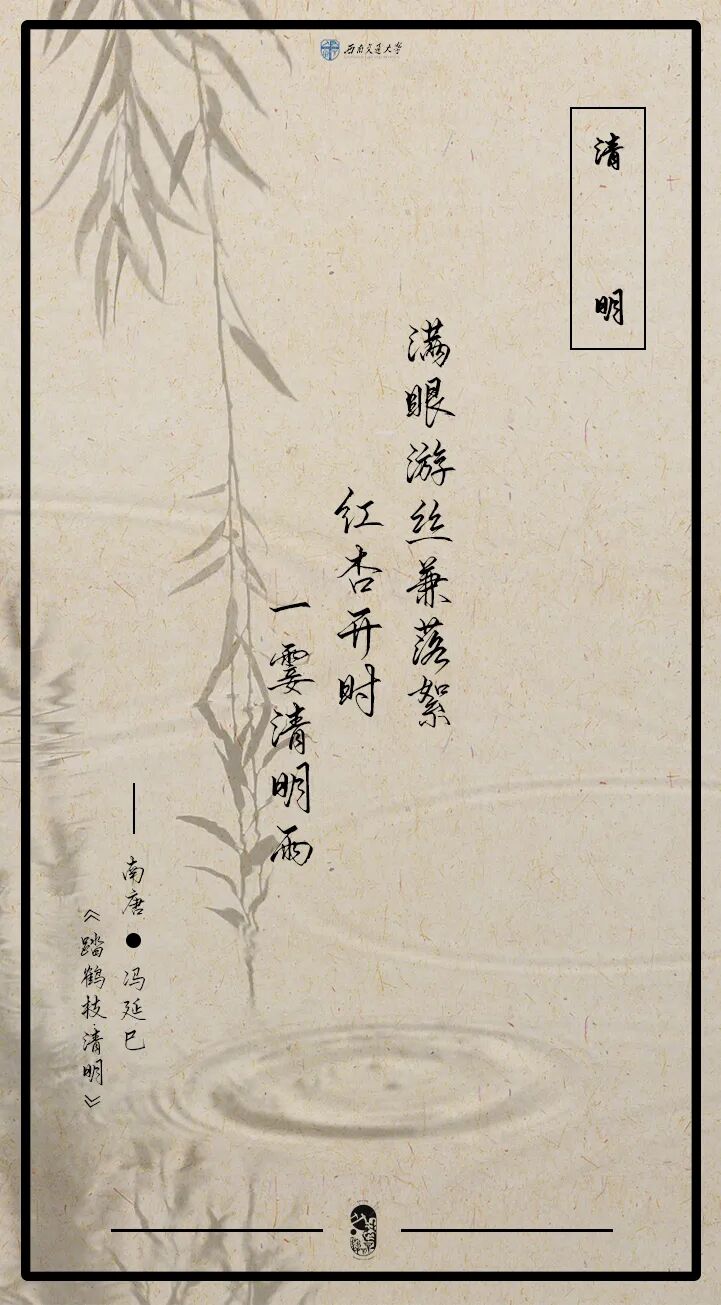 西南交通大学
清明
满眼游丝兼落絮
红杏开时
一霎清明雨
南唐●冯延巳
《踏鹤枝清明》